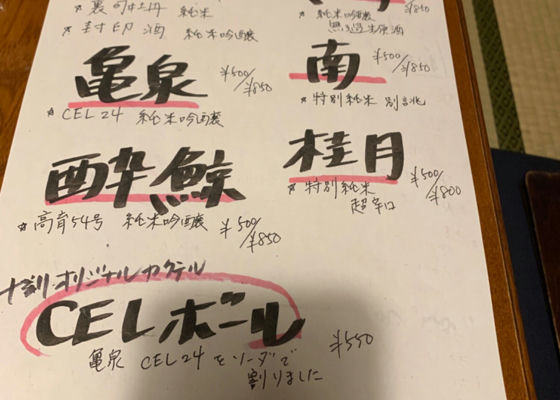 裏町牡丹 純米
☆ 封印酒 純米吟醸
亀泉 ¥500/¥850
☆ CEL24 純米吟醸
酔鯨
☆ 高育54号 純米吟醸 ¥500/¥850
¥850
☆ 純米吟醸
無濾過生原酒
南 ¥500/¥850
☆ 特別純米
桂月 ¥500/¥800
☆ 特別純米
超辛口
オリジナルカクテル
CELボール ¥550
亀泉 CEL24をソーダで
割りました